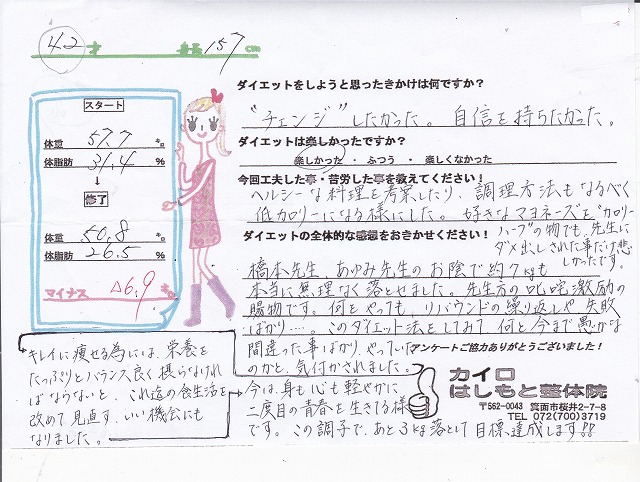 42 才 身長 157 cm
スタート
体重 57.7 キロ
体脂肪 31.4 %
↓
修了
体重 50.8 キロ
体脂肪 26.5 %
マイナス △6.9 キロ
ダイエットをしようと思ったきかけは何ですか？
"チェンジ"したかった。自信を持ちたかった。
ダイエットは楽しかったですか？
楽しかった ・ ふつう ・ 楽しくなかった
今回工夫した事・苦労した事を教えてください！
ヘルシーな料理を考案したり、調理方法もなるべく
低カロリーになる様にした。好きなマヨネーズを"カロリー
ハーフ"の物でも、先生に
ダメ出しされた事だけ悲
しかったです。
ダイエットの全体的な感想をおきかせください！
橋本先生、あゆみ先生のお陰で約7kgも
本当に無理なく落とせました。先生方の叱咤激励の
賜物です。何をやっても、リバウンドの繰り返しや失敗
ばかり…。このダイエット法をしてみて何と今まで愚かな
間違った事ばかりやっていた
のかと、気付かされました。
キレイに痩せる為には、栄養を
たっぷりとバランス良く摂らなければ
ばならないと、これ迄の食生活を
改めて見直す、いい機会にも
なりました。
今は、身も心も軽やかに
二度目の青春を生きてる様
です。この調子で、あと3kg落として目標達成します!!
アンケートご協力ありがとうございました！
カイロ
はしもと整体院
〒562-0043 箕面市桜井2-7-8
TEL 072(700)3719